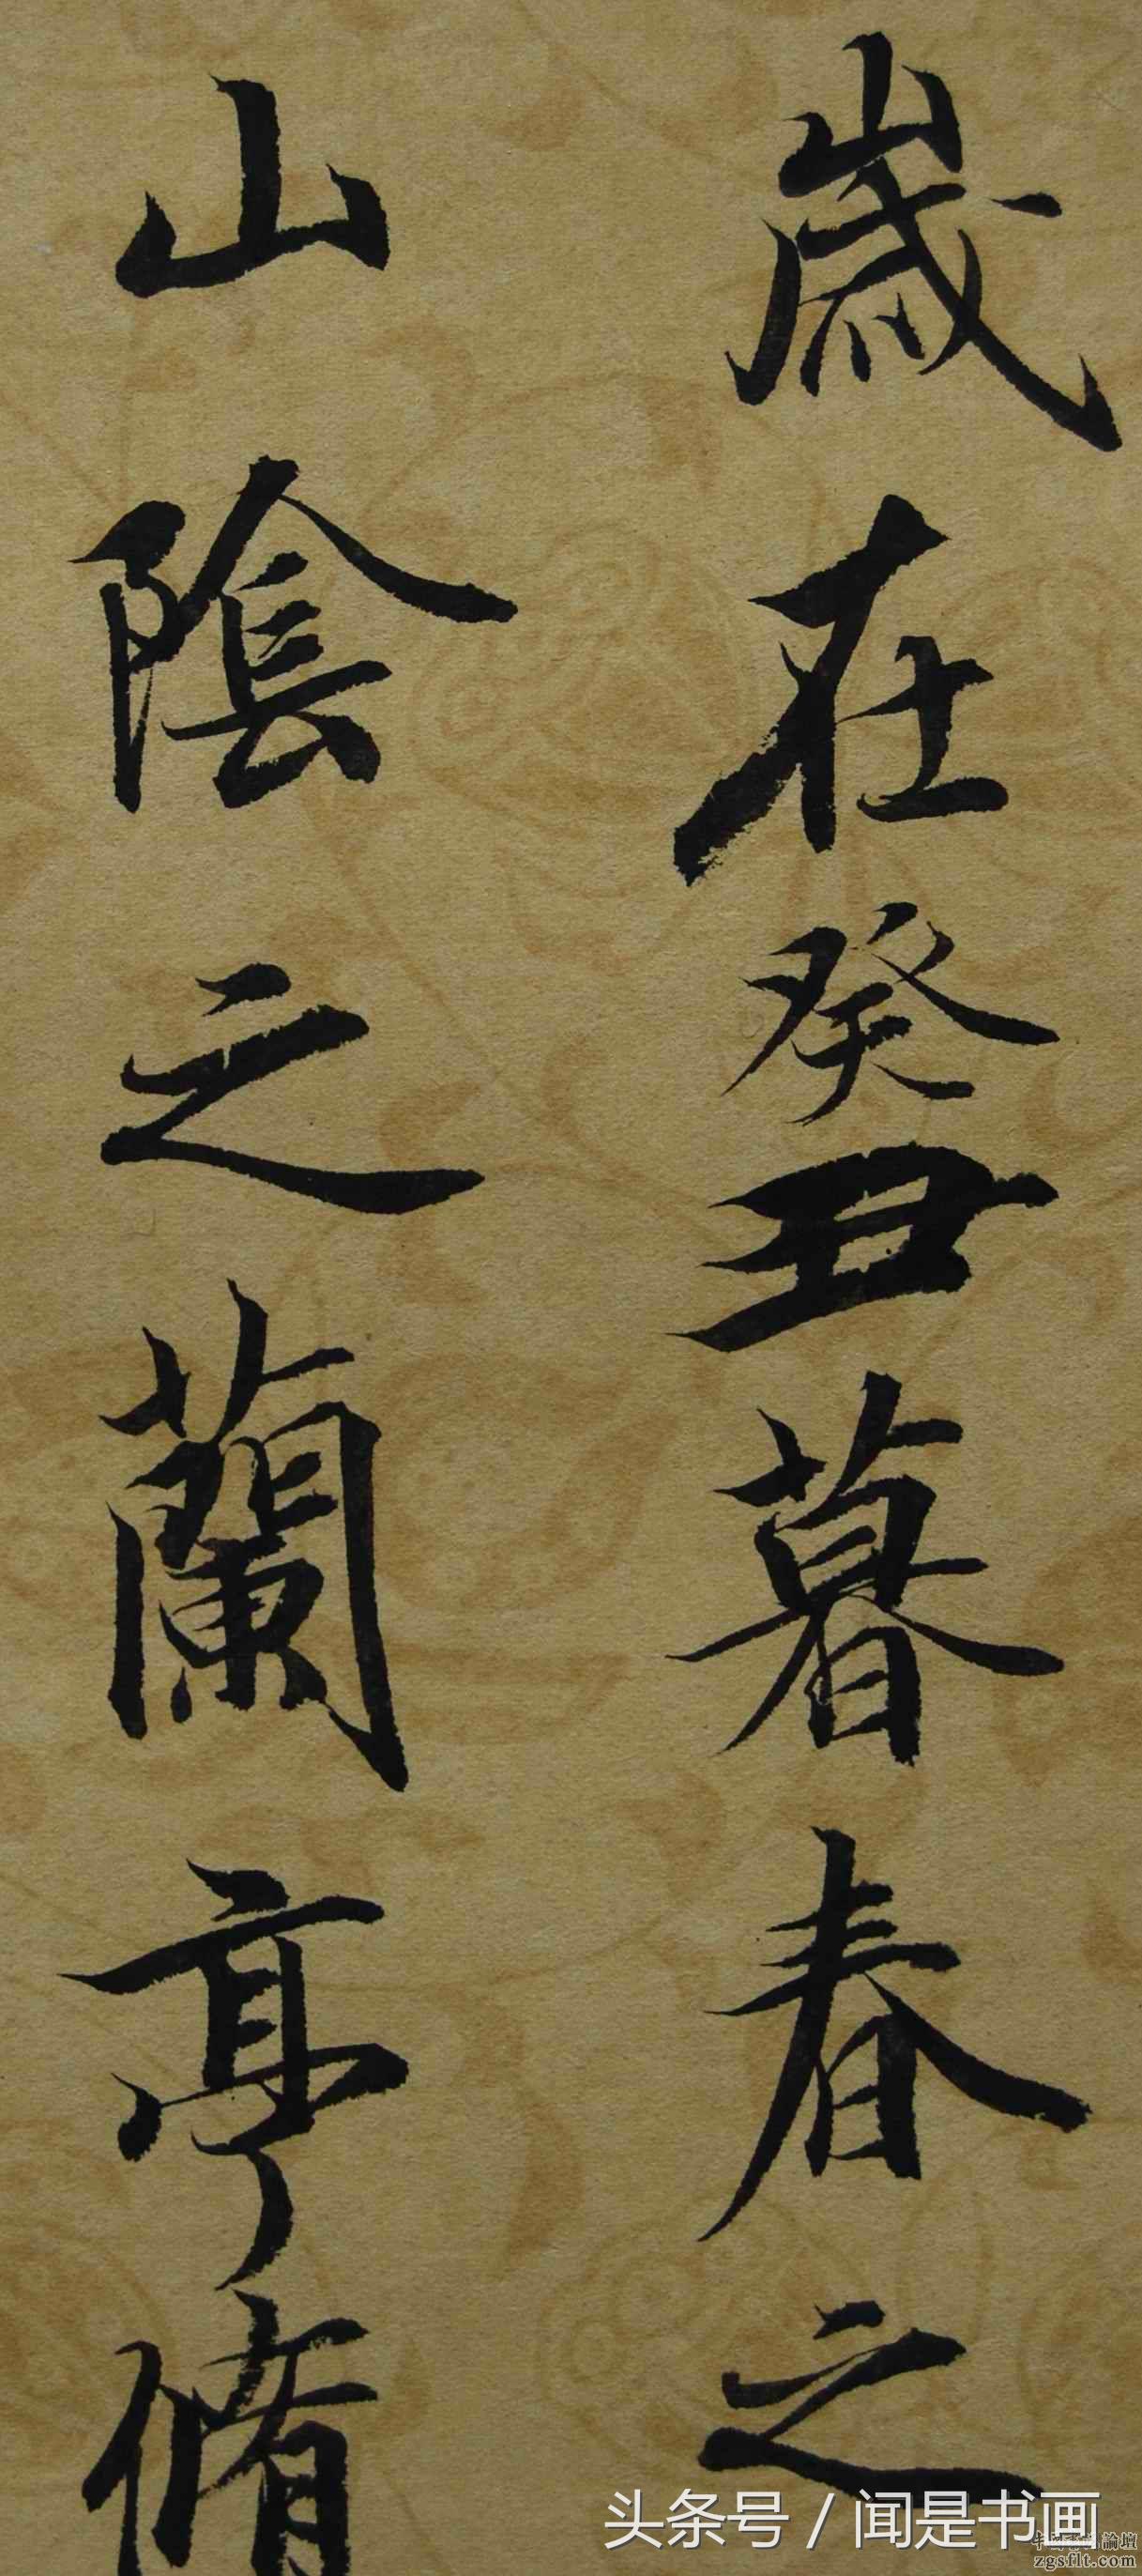 歲在癸丑暮春之
山陰之蘭亭脩
头条号 / 闻是书画
論壇
zgsflt.com